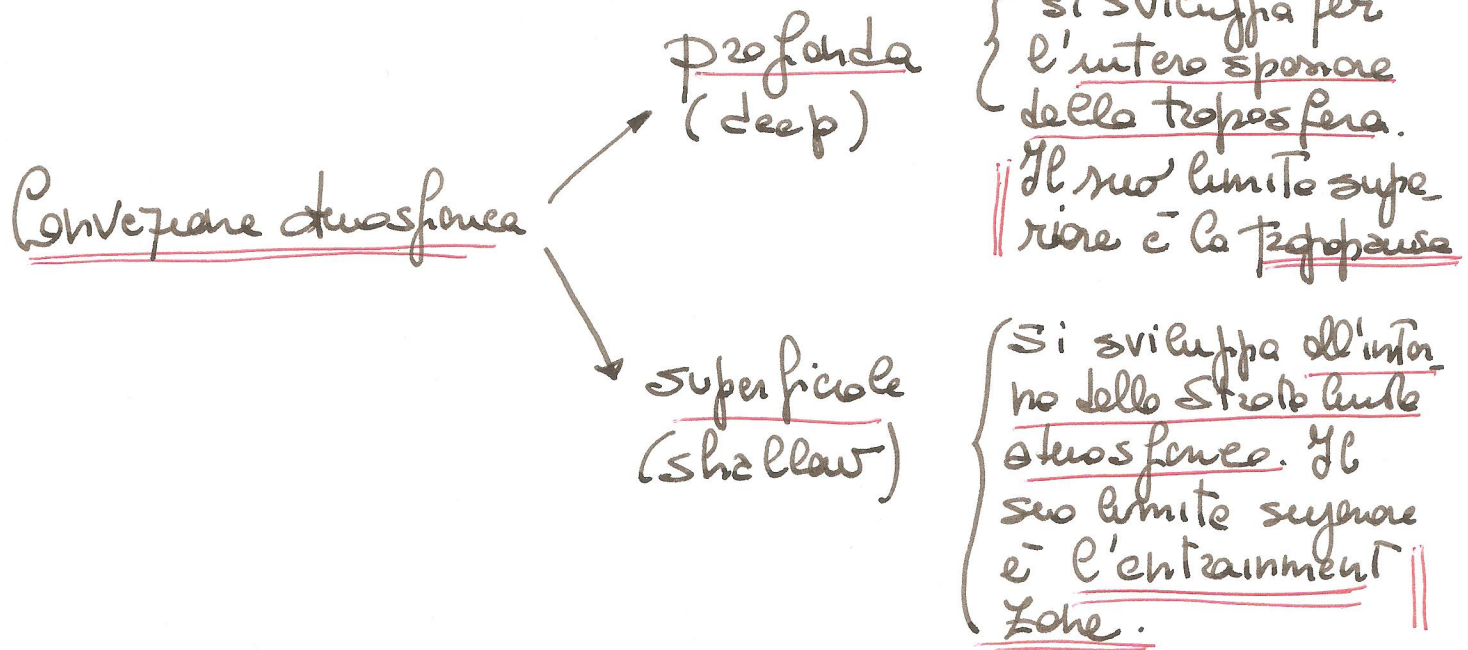 Convezione atmosferica
profonda
(deep)
si sviluppa per
l'intero spessore
della troposfera.
Il suo limite supe-
riore è la tropopausa
superficiale
(shallow)
si sviluppa all'inter-
no dello strato limite
atmosferico. Il
suo limite superiore
è l'entrainment
zone.